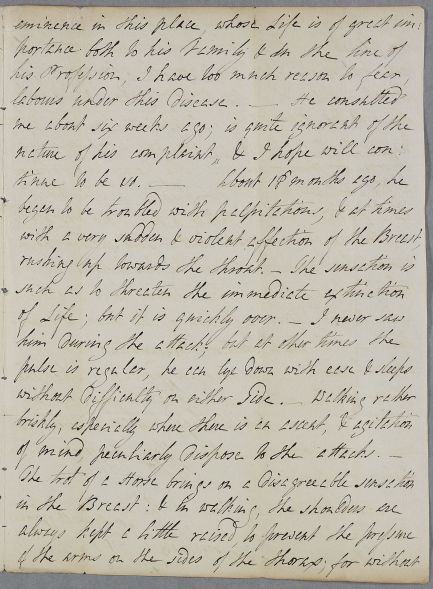 eminence in this place whose Life is of great im:
portance both to his Family & in the line of
his Profession, I have too much reason to fear,
labours under this Disease. — He consulted
me about six weeks ago; is quite ignorant of the
nature of his complaint, & I hope will con:
tinue to be so. — About 18 months ago, he
began to be troubled with palpitations, & at times
with a very sudden & violent affection of the Breast
rushing up towards the throat. — The sensation is
such as to threaten the immediate extinction
of Life; but it is quickly over. — I never saw
him During the attack; but at other times the
pulse is regular, he can lye down with ease & sleeps
without Difficulty on either side. — Walking rather
briskly, especially where there is an ascent, & agitation
of mind peculiarly Dispose to the attacks. —
The trot of a Horse brings on a Disagreeable sensation
in the Breast: & in walking, the shoulders are
always kept a little raised to prevent the pressure
of the arms on the sides of the thorax; for without